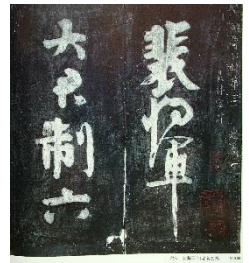 裴将軍
大君制六